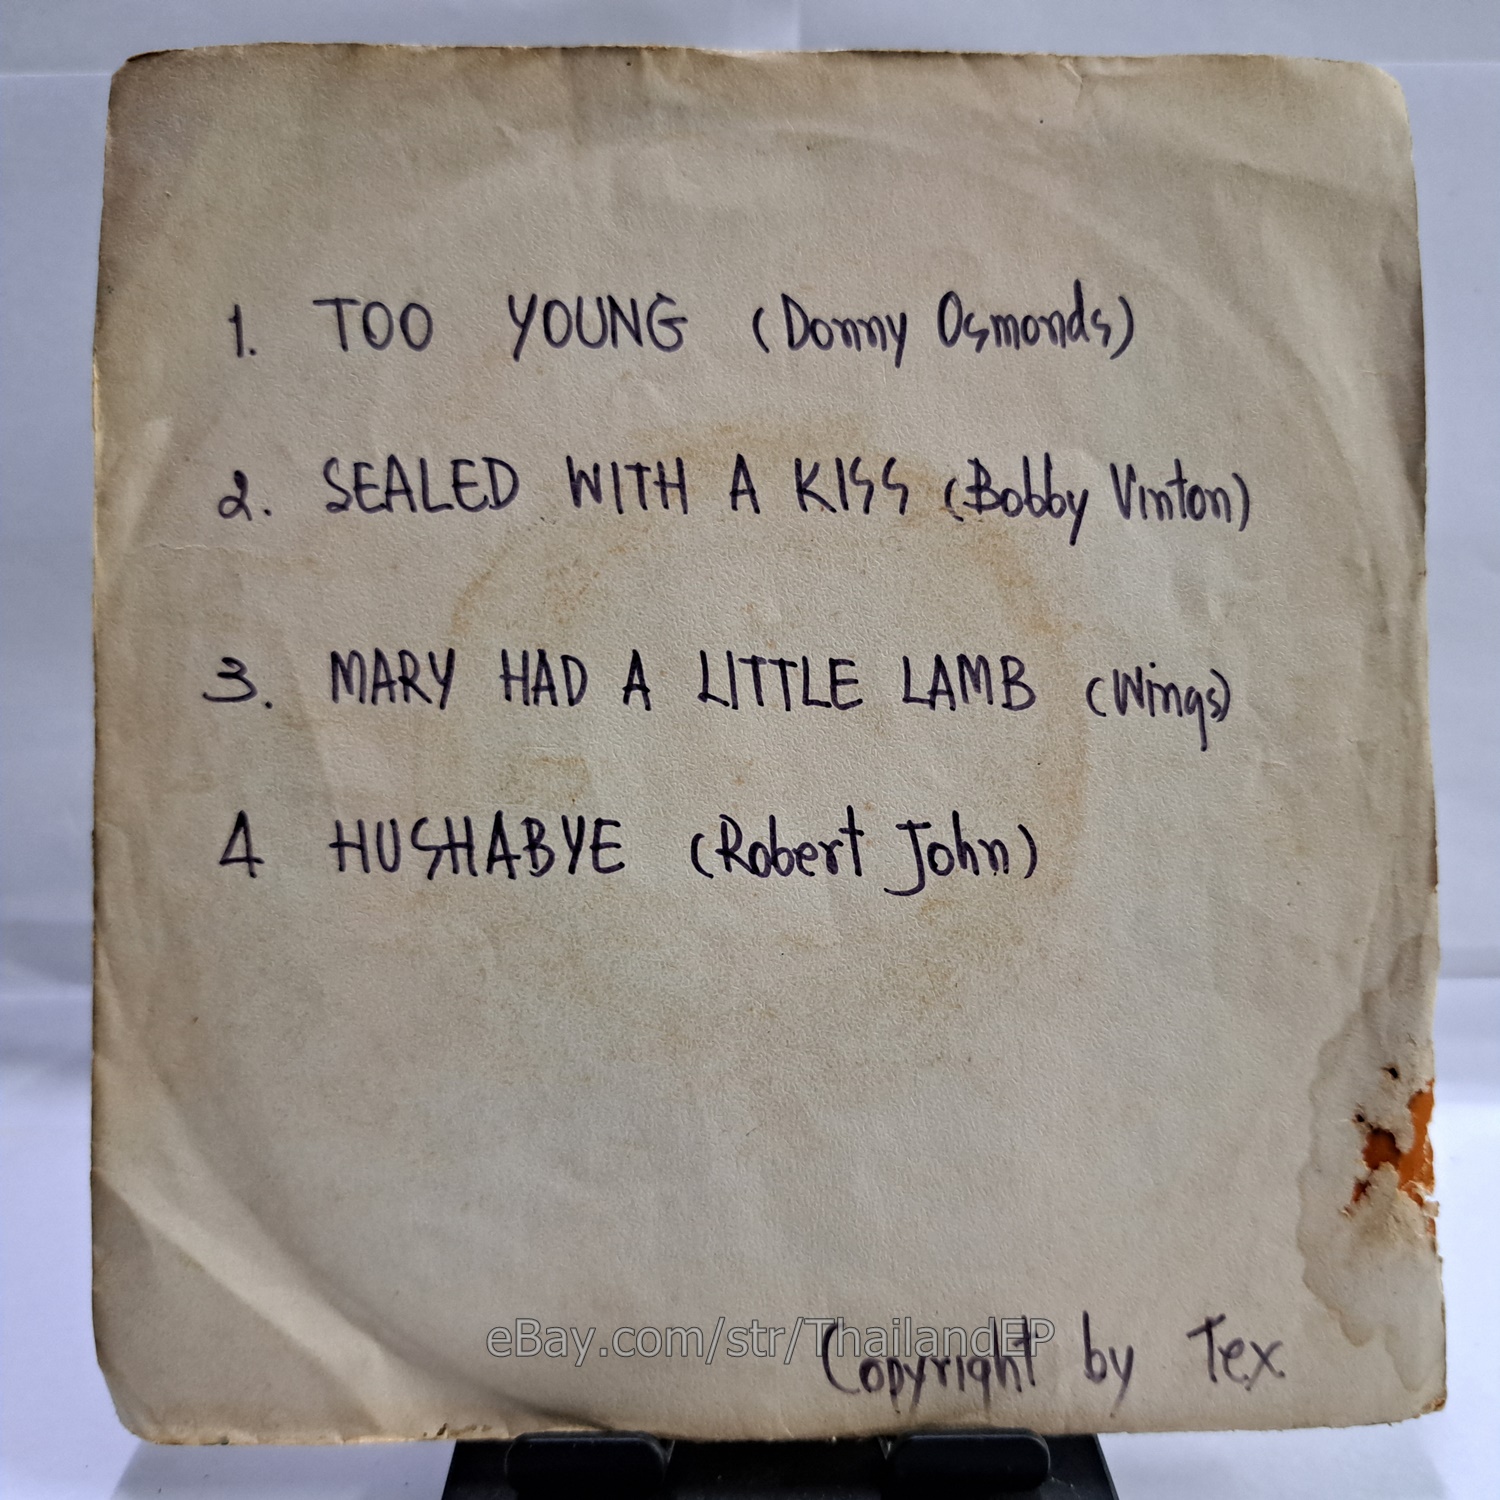 1. TOO YOUNG (Donny Osmonds)
2. SEALED WITH A KISS (Bobby Vinton)
3. MARY HAD A LITTLE LAMB (Wings)
4 HUSHABYE (Robert John)
eBay.com/str/ThailandEP
Copyright by Tex